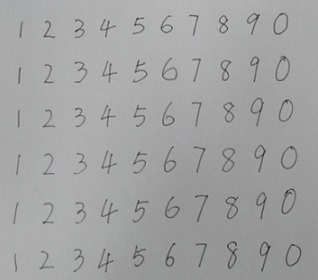 1 2 3 4 5 6 7 8 9 0
1 2 3 4 5 6 7 8 9 0
1 2 3 4 5 6 7 8 9 0
1 2 3 4 5 6 7 8 9 0
1 2 3 4 5 6 7 8 9 0
1 2 3 4 5 6 7 8 9 0